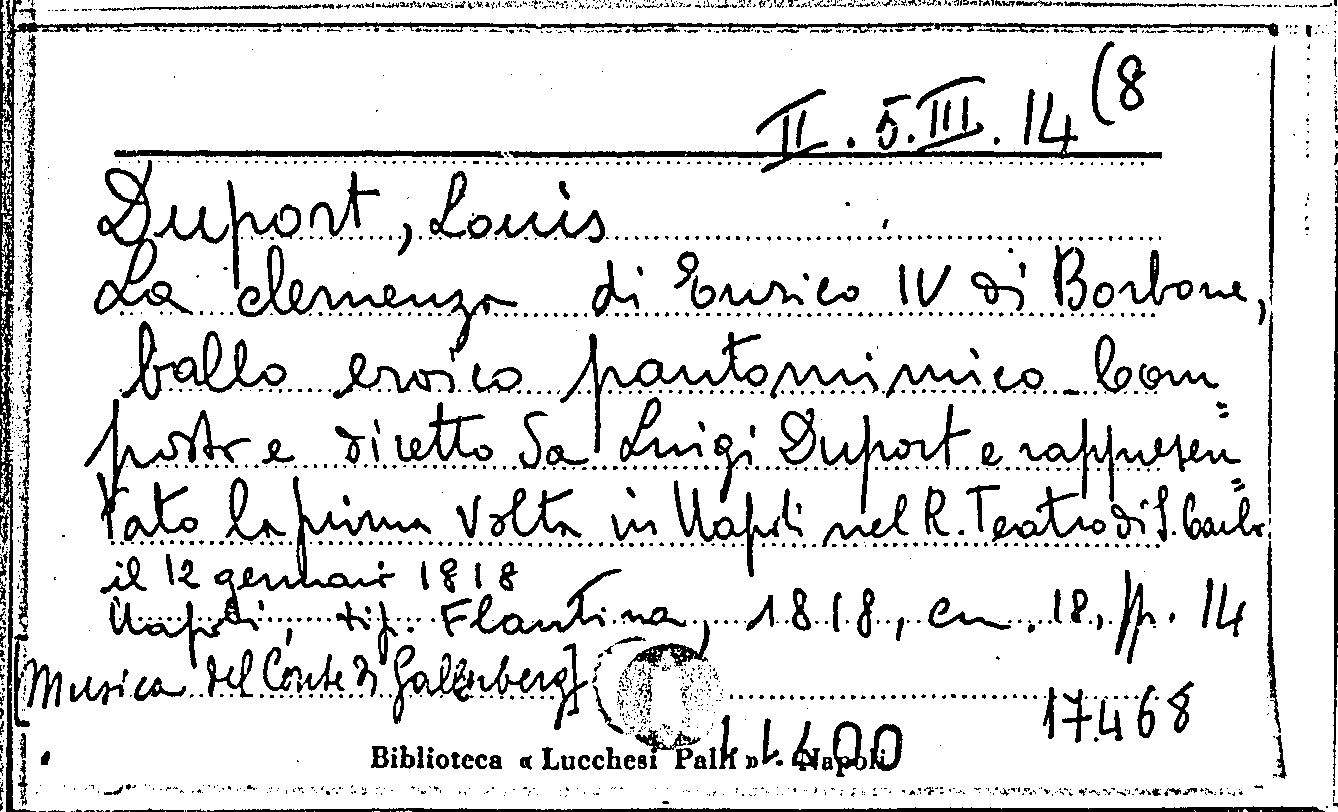 II. 5. III. 14 (8
Duport, Louis
La clemenza di Enrico IV di Borbone,
ballo eroico pantomimico com=
posto e diretto da Luigi Duport e rappresen=
tato la prima volta in Napoli nel R. Teatro di S. Carlo
il 12 gennaio 1818
Napoli, tip. Flautina, 1818, cm. 18, pp. 14
[Musica del Conte di Gallenberg]
17.468
Biblioteca « Lucchesi Palli » - Napoli